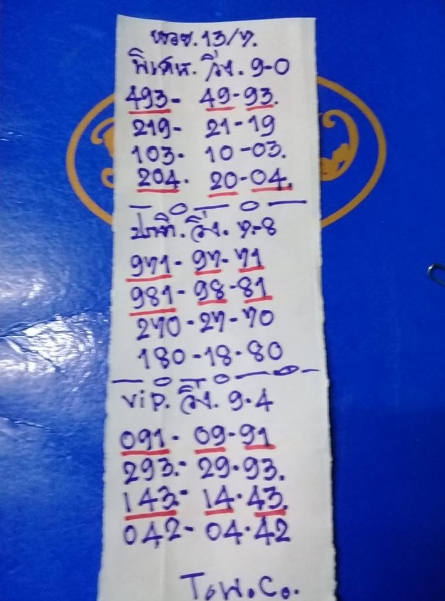 ฮานอย.13/7.
พิเศษ. วิ่ง. 9-0
493- 49-93.
219- 21-19
103- 10-03.
204. 20-04.
ปกติ. วิ่ง. 7-8
971- 97-71
981- 98-81
270-27-70
180-18-80
vip. วิ่ง. 9.4
091- 09-91
293.- 29.93.
143.- 14.43.
042- 04.42